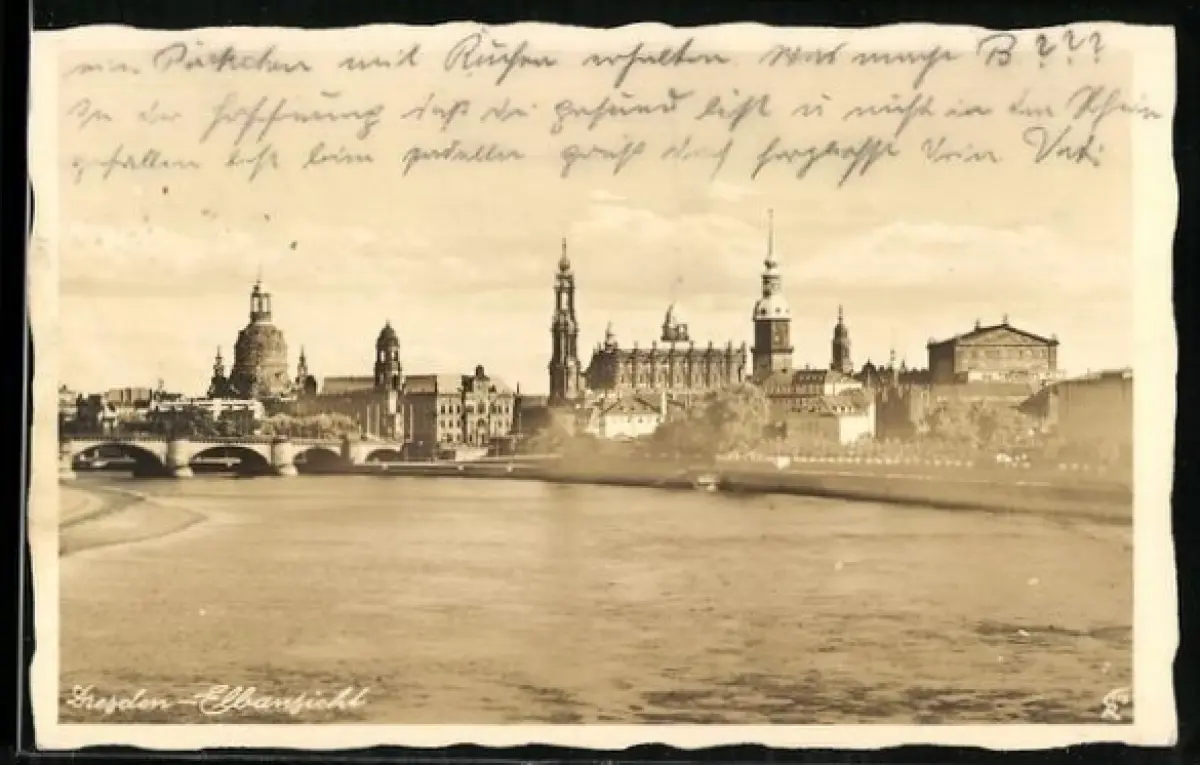 ein Päckchen mit Kuchen erhalten Was mach B ???
In der Hoffnung daß du gesund bist u nicht in den Schein
gefallen bist beim grüßt dich herzlichst Dein Vati
Dresden - Elbansicht